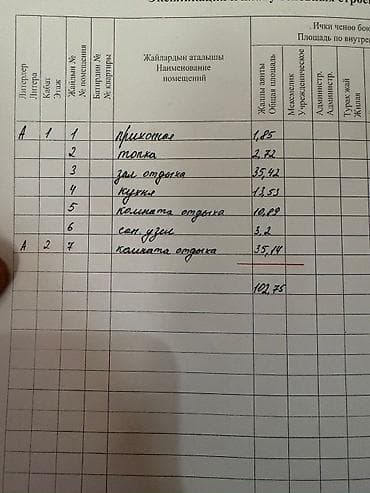 Экспликация
Ички ченөө бою
Площадь по внутре
Литерлер
Литера
Кабат
Этаж
Жайдын №
№ помещения
Батирдин №
№ квартиры
Жайлардын аталышы
Наименование
помещений
Жалпы аянты
Общая площадь
Мекемелик
Учрежденическое
Администр.
Администр.
Турак жай
Жилая
А 1 1 прихожая 1,85
2 топка 2,72
3 зал отдыха 35,42
4 кухня 13,53
5 комната отдыха 10,89
6 сан. узел 3,2
А 2 7 комната отдыха 35,14
102,75